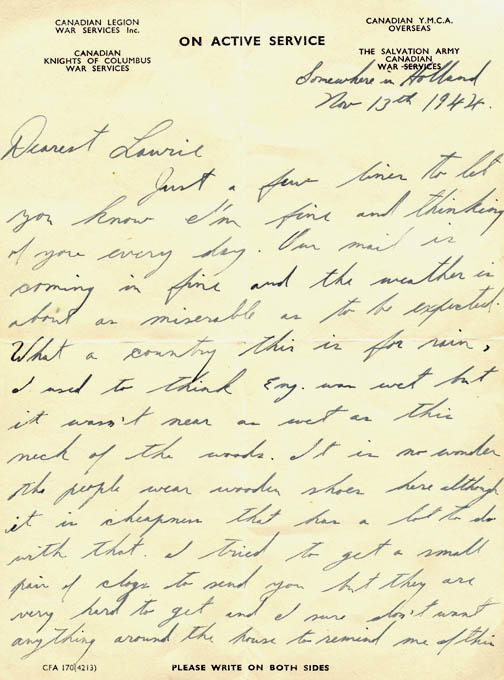 CANADIAN LEGION
WAR SERVICES Inc.
CANADIAN
KNIGHTS OF COLUMBUS
WAR SERVICES
ON ACTIVE SERVICE
CANADIAN Y.M.C.A.
OVERSEAS
THE SALVATION ARMY
CANADIAN
WAR SERVICES
Somewhere in Holland
Nov 13th 1944.
Dearest Lawrie
Just a few lines to let
you know I'm fine and thinking
of you every day. Our mail is
coming in fine and the weather is
about as miserable as to be expected.
What a country this is for rain,
I used to think Eng. was wet but
it wasn't near as wet as this
neck of the woods. It is no wonder
the people wear wooden shoes here although
it is cheapness that has a lot to do
with that. I tried to get a small
pair of clogs to send you but they are
very hard to get and I sure don't want
anything around the house to remind me of this
CFA 170(4213)
PLEASE WRITE ON BOTH SIDES